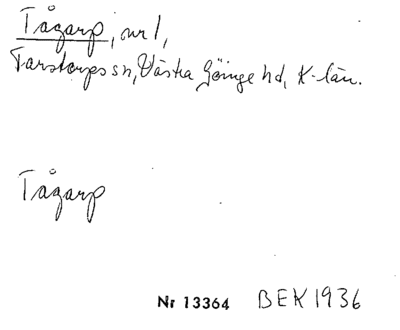 Tågarp, nr 1,
Farstorps sn, Västra Göinge hd, K-län.
Tågarp
Nr 13364 BEK 1936